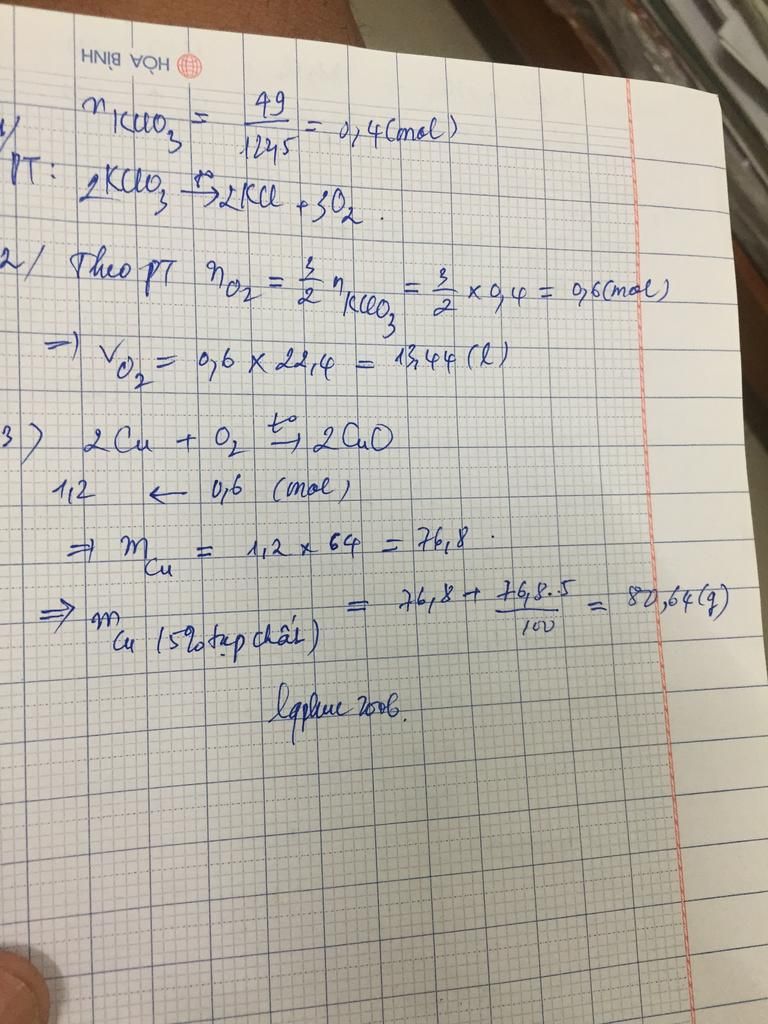 HÒA BÌNH
1/ nKClO3 = 49/122,5 = 0,4(mol)
PT: 2KClO3 t°→ 2KCl + 3O2.
2/ Theo PT nO2 = 3/2 nKClO3 = 3/2 × 0,4 = 0,6(mol)
=> VO2 = 0,6 × 22,4 = 13,44 (l)
3) 2Cu + O2 t°→ 2CuO
1,2 ← 0,6 (mol)
=> mCu = 1,2 × 64 = 76,8.
=> mCu (5% tạp chất) = 76,8 + 76,8.5/100 = 80,64(g)
lqphuc2006.